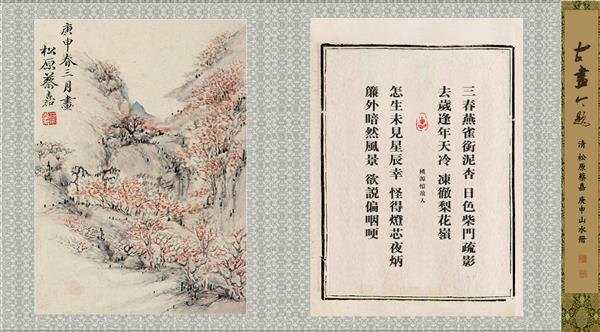 庚申春三月畫
松原蔡嘉
三春燕雀銜泥杏 日色柴門疏影
去歲逢年天冷 凍徹梨花嶺
桃源憶故人
怎生未見星辰幸 怪得燈芯夜炳
簾外暗然風景 欲説偏咽哽
古畫今題
清 松原蔡嘉 庚申山水冊